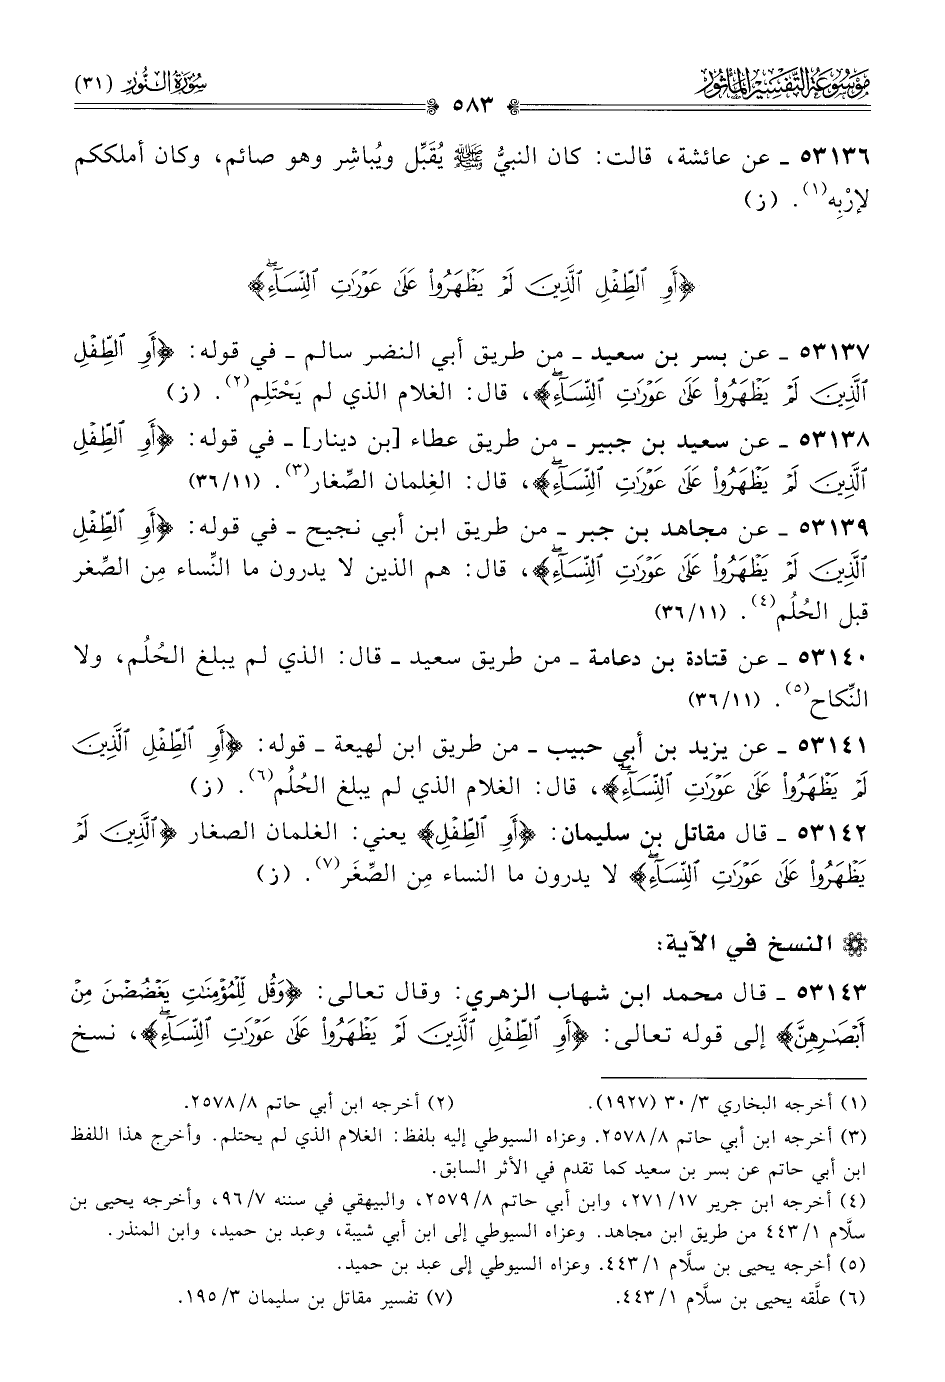 موسوعة التفسير المأثور
سورة النور (٣١)
٥٨٣
٥٣١٣٦ ـ عن عائشة، قالت: كان النبيُّ ﷺ يُقَبِّل ويُباشِر وهو صائم، وكان أملككم
لإرْبِه(١). (ز)
﴿أَوِ ٱلطِّفْلِ ٱلَّذِينَ لَمْ يَظْهَرُوا۟ عَلَىٰ عَوْرَٰتِ ٱلنِّسَآءِ﴾
٥٣١٣٧ ـ عن بسر بن سعيد ـ من طريق أبي النضر سالم ـ في قوله: ﴿أَوِ ٱلطِّفْلِ
ٱلَّذِينَ لَمْ يَظْهَرُوا۟ عَلَىٰ عَوْرَٰتِ ٱلنِّسَآءِ﴾، قال: الغلام الذي لم يَحْتَلِم(٢). (ز)
٥٣١٣٨ ـ عن سعيد بن جبير ـ من طريق عطاء [بن دينار] ـ في قوله: ﴿أَوِ ٱلطِّفْلِ
ٱلَّذِينَ لَمْ يَظْهَرُوا۟ عَلَىٰ عَوْرَٰتِ ٱلنِّسَآءِ﴾، قال: الغِلمان الصِّغار(٣). (٣٦/١١)
٥٣١٣٩ ـ عن مجاهد بن جبر ـ من طريق ابن أبي نجيح ـ في قوله: ﴿أَوِ ٱلطِّفْلِ
ٱلَّذِينَ لَمْ يَظْهَرُوا۟ عَلَىٰ عَوْرَٰتِ ٱلنِّسَآءِ﴾، قال: هم الذين لا يدرون ما النِّساء مِن الصِّغر
قبل الحُلُم(٤). (٣٦/١١)
٥٣١٤٠ ـ عن قتادة بن دعامة ـ من طريق سعيد ـ قال: الذي لم يبلغ الحُلُم، ولا
النِّكاح(٥). (٣٦/١١)
٥٣١٤١ ـ عن يزيد بن أبي حبيب ـ من طريق ابن لهيعة ـ قوله: ﴿أَوِ ٱلطِّفْلِ ٱلَّذِينَ
لَمْ يَظْهَرُوا۟ عَلَىٰ عَوْرَٰتِ ٱلنِّسَآءِ﴾، قال: الغلام الذي لم يبلغ الحُلُم(٦). (ز)
٥٣١٤٢ ـ قال مقاتل بن سليمان: ﴿أَوِ ٱلطِّفْلِ﴾ يعني: الغلمان الصغار ﴿ٱلَّذِينَ لَمْ
يَظْهَرُوا۟ عَلَىٰ عَوْرَٰتِ ٱلنِّسَآءِ﴾ لا يدرون ما النساء مِن الصِّغَر(٧). (ز)
النسخ في الآية:
٥٣١٤٣ ـ قال محمد ابن شهاب الزهري: وقال تعالى: ﴿وَقُل لِّلْمُؤْمِنَٰتِ يَغْضُضْنَ مِنْ
أَبْصَٰرِهِنَّ﴾ إلى قوله تعالى: ﴿أَوِ ٱلطِّفْلِ ٱلَّذِينَ لَمْ يَظْهَرُوا۟ عَلَىٰ عَوْرَٰتِ ٱلنِّسَآءِ﴾، نسخ
(١) أخرجه البخاري ٣٠/٣ (١٩٢٧). (٢) أخرجه ابن أبي حاتم ٢٥٧٨/٨.
(٣) أخرجه ابن أبي حاتم ٢٥٧٨/٨. وعزاه السيوطي إليه بلفظ: الغلام الذي لم يحتلم. وأخرج هذا اللفظ
ابن أبي حاتم عن بسر بن سعيد كما تقدم في الأثر السابق.
(٤) أخرجه ابن جرير ٢٧١/١٧، وابن أبي حاتم ٢٥٧٩/٨، والبيهقي في سننه ٩٦/٧، وأخرجه يحيى بن
سلَّام ٤٤٣/١ من طريق ابن مجاهد. وعزاه السيوطي إلى ابن أبي شيبة، وعبد بن حميد، وابن المنذر.
(٥) أخرجه يحيى بن سلَّام ٤٤٣/١. وعزاه السيوطي إلى عبد بن حميد.
(٦) علَّقه يحيى بن سلَّام ٤٤٣/١. (٧) تفسير مقاتل بن سليمان ١٩٥/٣.